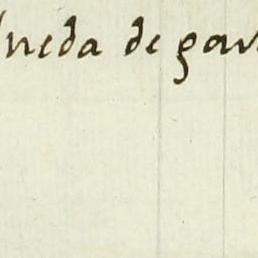 neda de gov